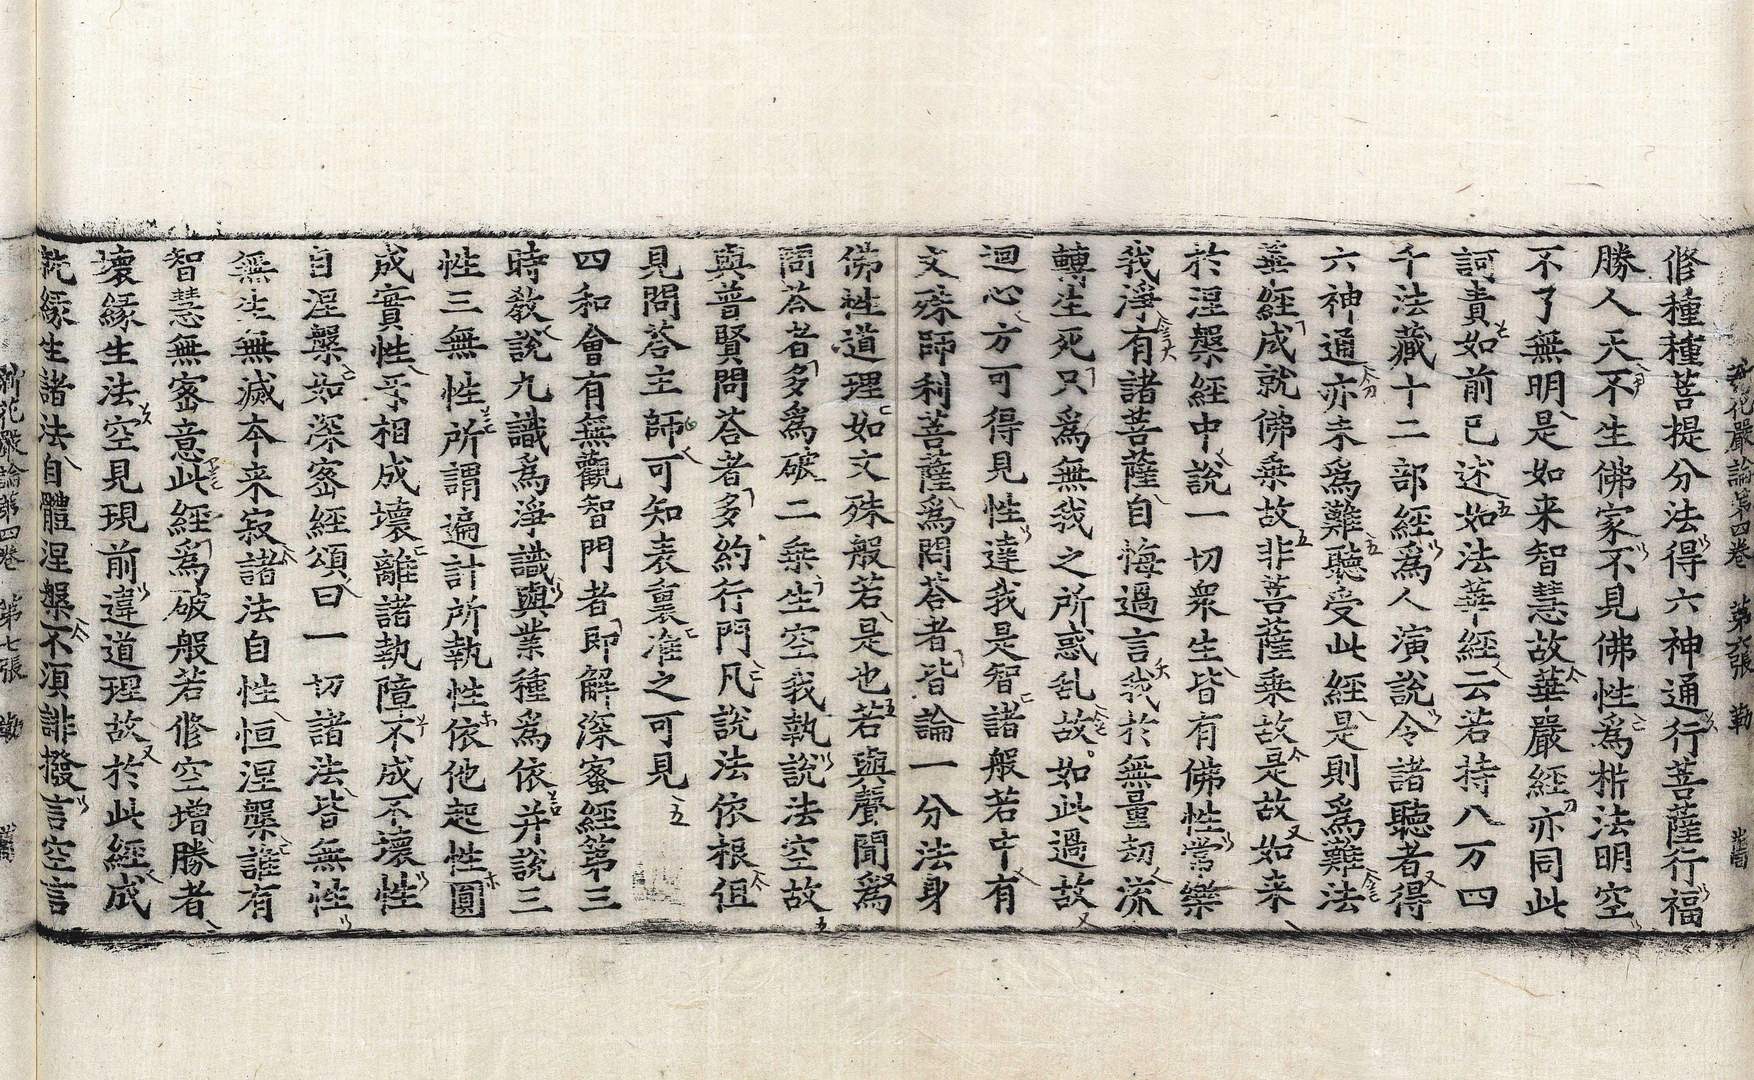 新花嚴論第四卷 第六張 勒
修種種菩提分法得六神通行菩薩行福
勝人天不生佛家不見佛性爲析法明空
不了無明是如来智慧故華嚴經亦同此
訶責如前已述如法華經云若持八万四
千法藏十二部經爲人演說令諸聽者得
六神通亦未爲難聽受此經是則爲難法
華經成就佛乗故非菩薩乗故是故如来
於涅槃經中說一切衆生皆有佛性常樂
我淨有諸菩薩自悔過言我於無量劫流
轉生死只爲無我之所惑乱故如此過故
迴心方可得見性達我是智諸般若中有
文殊師利菩薩爲問荅者皆論一分法身
佛性道理如文殊般若是也若與聲聞爲
問荅者多爲破二乗生空我執說法空故
與普賢問荅者多約行門凡說法依根但
見問荅主師可知表裏准之可見
四和會有無觀智門者即解深蜜經第三
時教說九識爲淨識與業種爲依并說三
性三無性所謂遍計所執性依他起性圓
成實性乎相成壞離諸執障不成不壞性
自涅槃如深宻經頌曰一切諸法皆無性
無生無滅本来寂諸法自性恒涅槃誰有
智慧無宻意此經爲破般若修空增勝者
壞緣生法空見現前違道理故於此經成
就緣生諸法自體涅槃不湏誹撥言空言
新花嚴論第四卷 第七張 勒